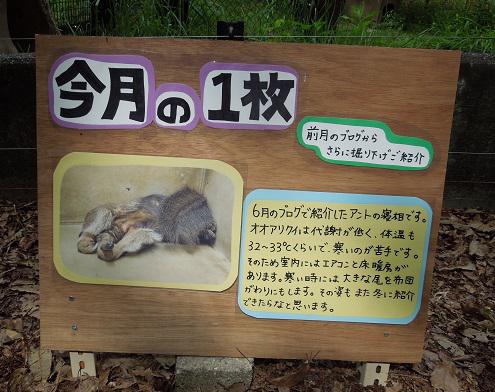 今月の1枚
前月のブログから
さらに掘り下げご紹介
6月のブログで紹介したアントの寝相です。
オオアリクイは代謝が低く、体温も
32~33℃くらいで、寒いのが苦手です。
そのため室内にはエアコンと床暖房が
あります。寒い時には大きな尾を布団
がわりにもします。その姿もまた冬に紹介
できたらなと思います。